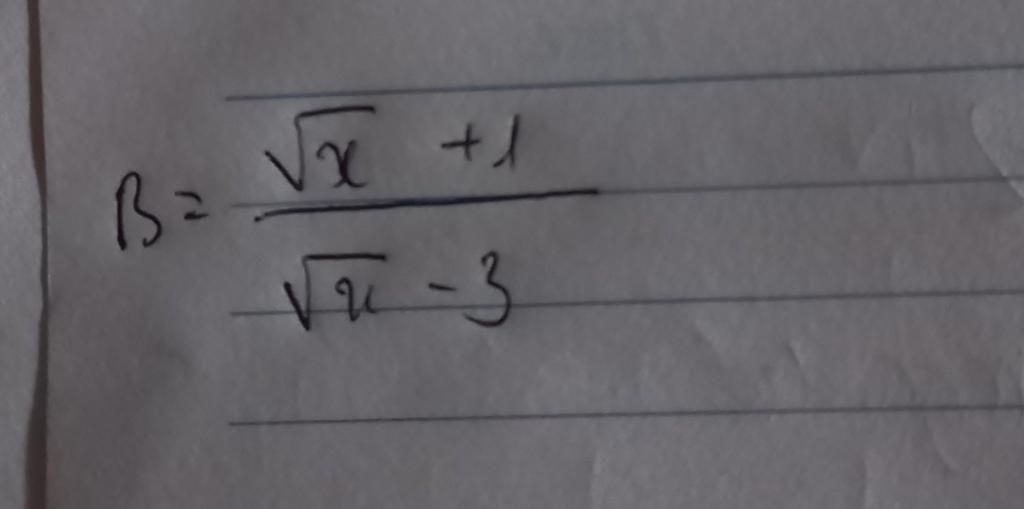 B = \frac{\sqrt{x} + 1}{\sqrt{x} - 3}